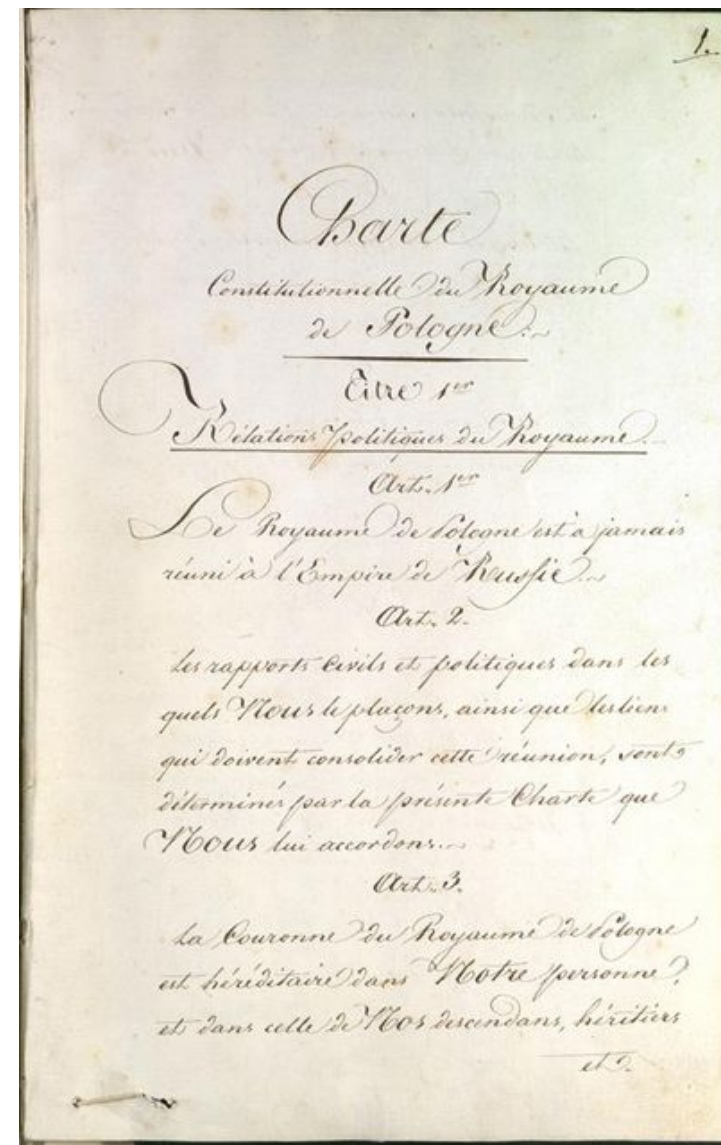 1.
Charte
Constitutionnelle du Royaume
de Pologne.
Titre 1er
Rélations politiques du Royaume.
Art. 1er
Le Royaume de Pologne est à jamais
réuni à l'Empire de Russie.
Art. 2.
Les rapports Civils et politiques dans les
quels Nous le plaçons, ainsi que les liens
qui doivent consolider cette réunion, sont
déterminés par la présente Charte que
Nous lui accordons.
Art. 3.
La Couronne du Royaume de Pologne
est héréditaire dans Notre personne,
et dans celle de Nos descendans, héritiers
et